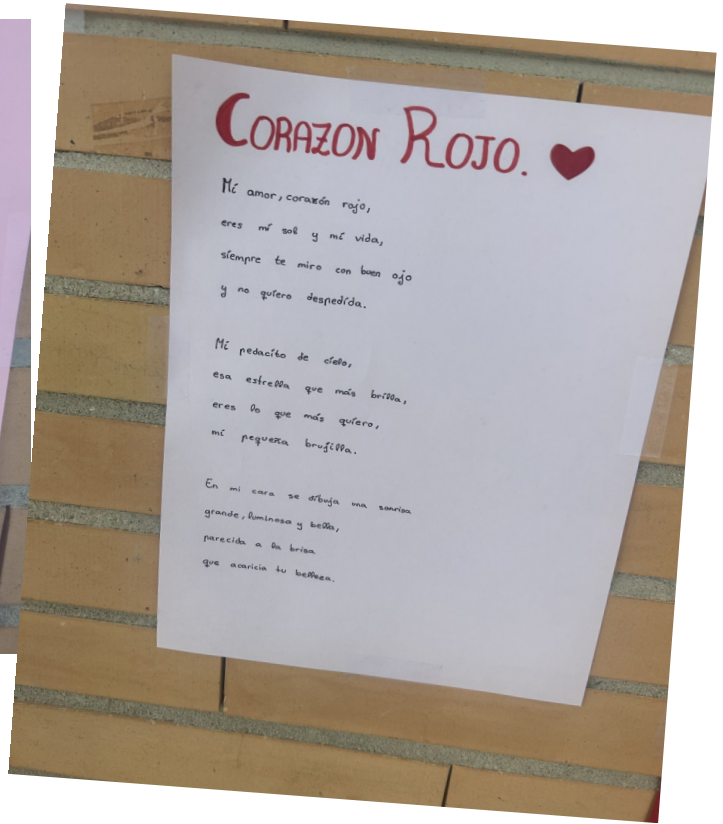 CORAZON ROJO.
Mi amor, corazón rojo,
eres mi sol y mi vida,
siempre te miro con buen ojo
y no quiero despedida.
Mi pedacito de cielo,
esa estrella que más brilla,
eres lo que más quiero,
mi pequeña brujilla.
En mi cara se dibuja una sonrisa
grande, luminosa y bella,
parecida a la brisa
que acaricia tu belleza.